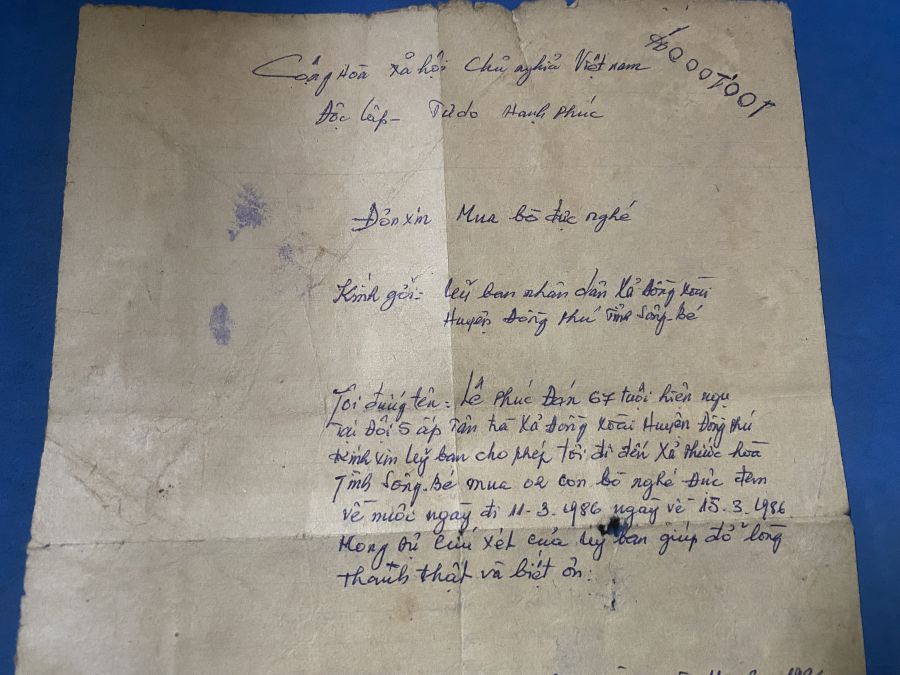 Cộng Hòa Xả hội Chủ nghỉa Việt nam
Độc lập - Tử do Hạnh Phúc
Đỏn xin Mua bò đực nghé
Kính gởi: Uỷ ban nhân dân Xả Đồng Xoài
Huyện Đồng Phú Tỉnh Sông-Bé
Tôi đứng tên: Lê Phúc Đán 67 tuổi hiên ngụ
Tại Đội 5 ấp Tân trà Xả Đồng Xoài Huyện Đồng Phú
Kính xin Uỷ ban cho phép tôi đi đến Xả Phước hoà
Tỉnh Sông-Bé mua 02 con bò nghé Đức đem
về nuôi ngày đi 11-3.1986 ngày về 15.3.1986
Mong sử Cứu xét của Uỷ ban giúp đở lòng
thành thật và biết ỏn: